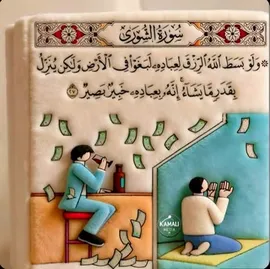 سُورَةُ الشُّورَىٰ
۞ وَلَوْ بَسَطَ ٱللَّهُ ٱلرِّزْقَ لِعِبَادِهِۦ لَبَغَوْا۟ فِى ٱلْأَرْضِ وَلَٰكِن يُنَزِّلُ
بِقَدَرٍ مَّا يَشَآءُ ۚ إِنَّهُۥ بِعِبَادِهِۦ خَبِيرٌۢ بَصِيرٌ ٢٧
KAMALI